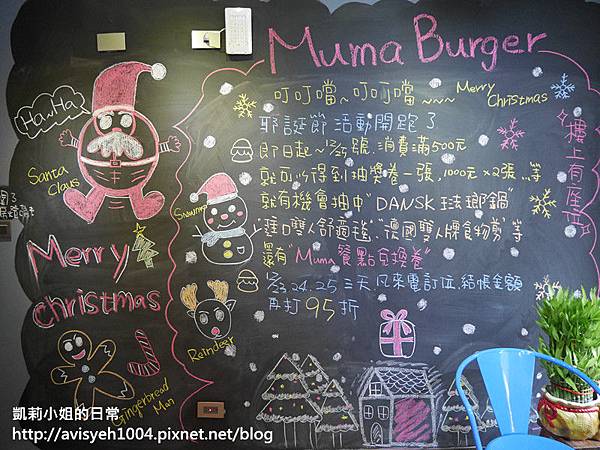 Muma Burger
HaHa
Santa
Claus
Merry
christmas
Gingerbread
Man
Snowman
Reindeer
叮叮噹~叮叮噹~~~ Merry
Christmas
耶誕節活動開跑了
即日起~12/25號,消費滿500元
就可以得到抽獎卷一張,1000元x2張...等
就有機會抽中"DANSK琺瑯鍋"
"進口雙人舒適毯""德國雙人牌食物剪"等
還有"Muma餐點兌換卷"
12/23.24.25三天凡來電訂位,結帳金額
再打95折
樓上有座位
凱莉小姐的日常
http://avisyeh1004.pixnet.net/blog